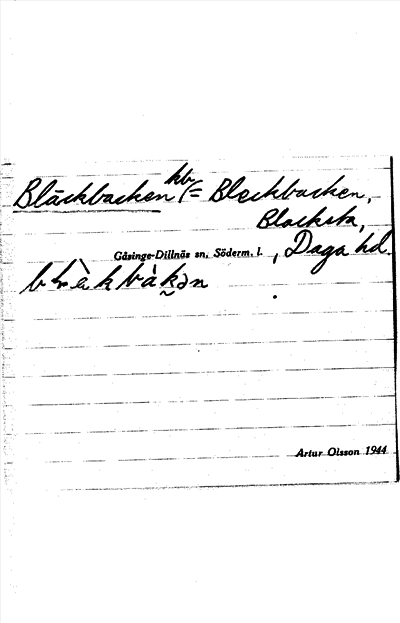 Bläckbacken kb (= Bleckbacken,
Blacksta,
Gåsinge-Dillnäs sn, Söderm. l. , Daga hd.
Artur Olsson 1944